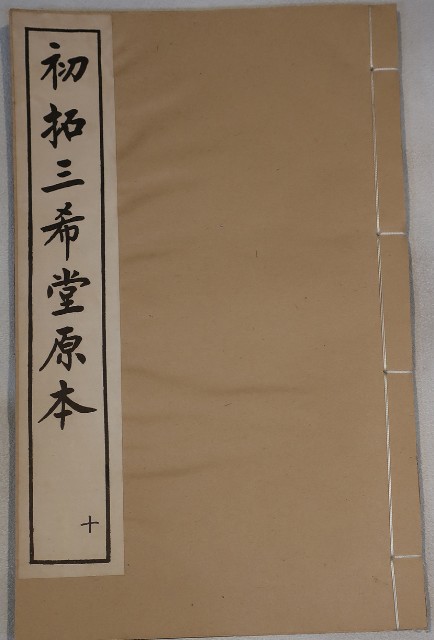 初拓三希堂原本
十